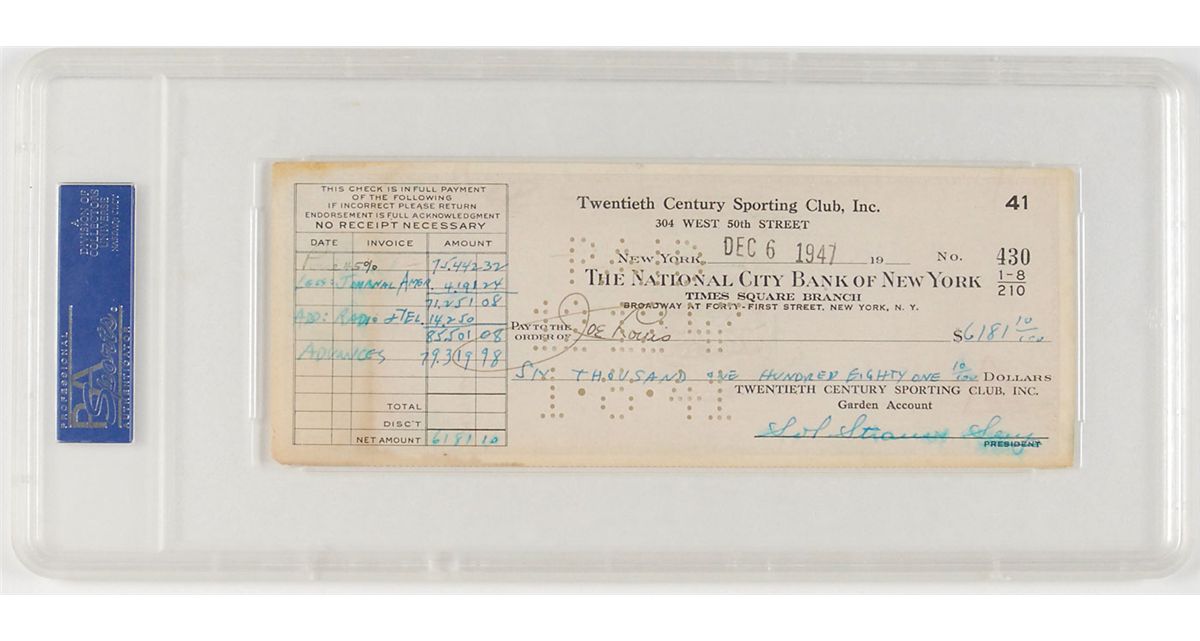 A
DIVISION OF
COLLECTORS
UNIVERSE
NASDAQ: CLCT
PROFESSIONAL
PSA
Sports
AUTHENTICATOR
THIS CHECK IS IN FULL PAYMENT
OF THE FOLLOWING
IF INCORRECT PLEASE RETURN
ENDORSEMENT IS FULL ACKNOWLEDGMENT
NO RECEIPT NECESSARY
DATE INVOICE AMOUNT
45% 75.442 32
LESS: JOURNAL AMER. 4.191 24
71.251 08
ADD: RADIO & TEL. 14.250
85.501 08
ADVANCES 79.319 98
TOTAL
DISC'T
NET AMOUNT 6181 10
Twentieth Century Sporting Club, Inc. 41
304 WEST 50th STREET
NEW YORK, DEC 6 1947 19 No. 430
THE NATIONAL CITY BANK OF NEW YORK 1-8
TIMES SQUARE BRANCH 210
BROADWAY AT FORTY-FIRST STREET, NEW YORK, N. Y.
PAY TO THE
ORDER OF Joe Louis $6181 10/100
SIX THOUSAND ONE HUNDRED EIGHTY ONE 10/100 DOLLARS
TWENTIETH CENTURY SPORTING CLUB, INC.
Garden Account
Sol Strauss
PRESIDENT
PAID